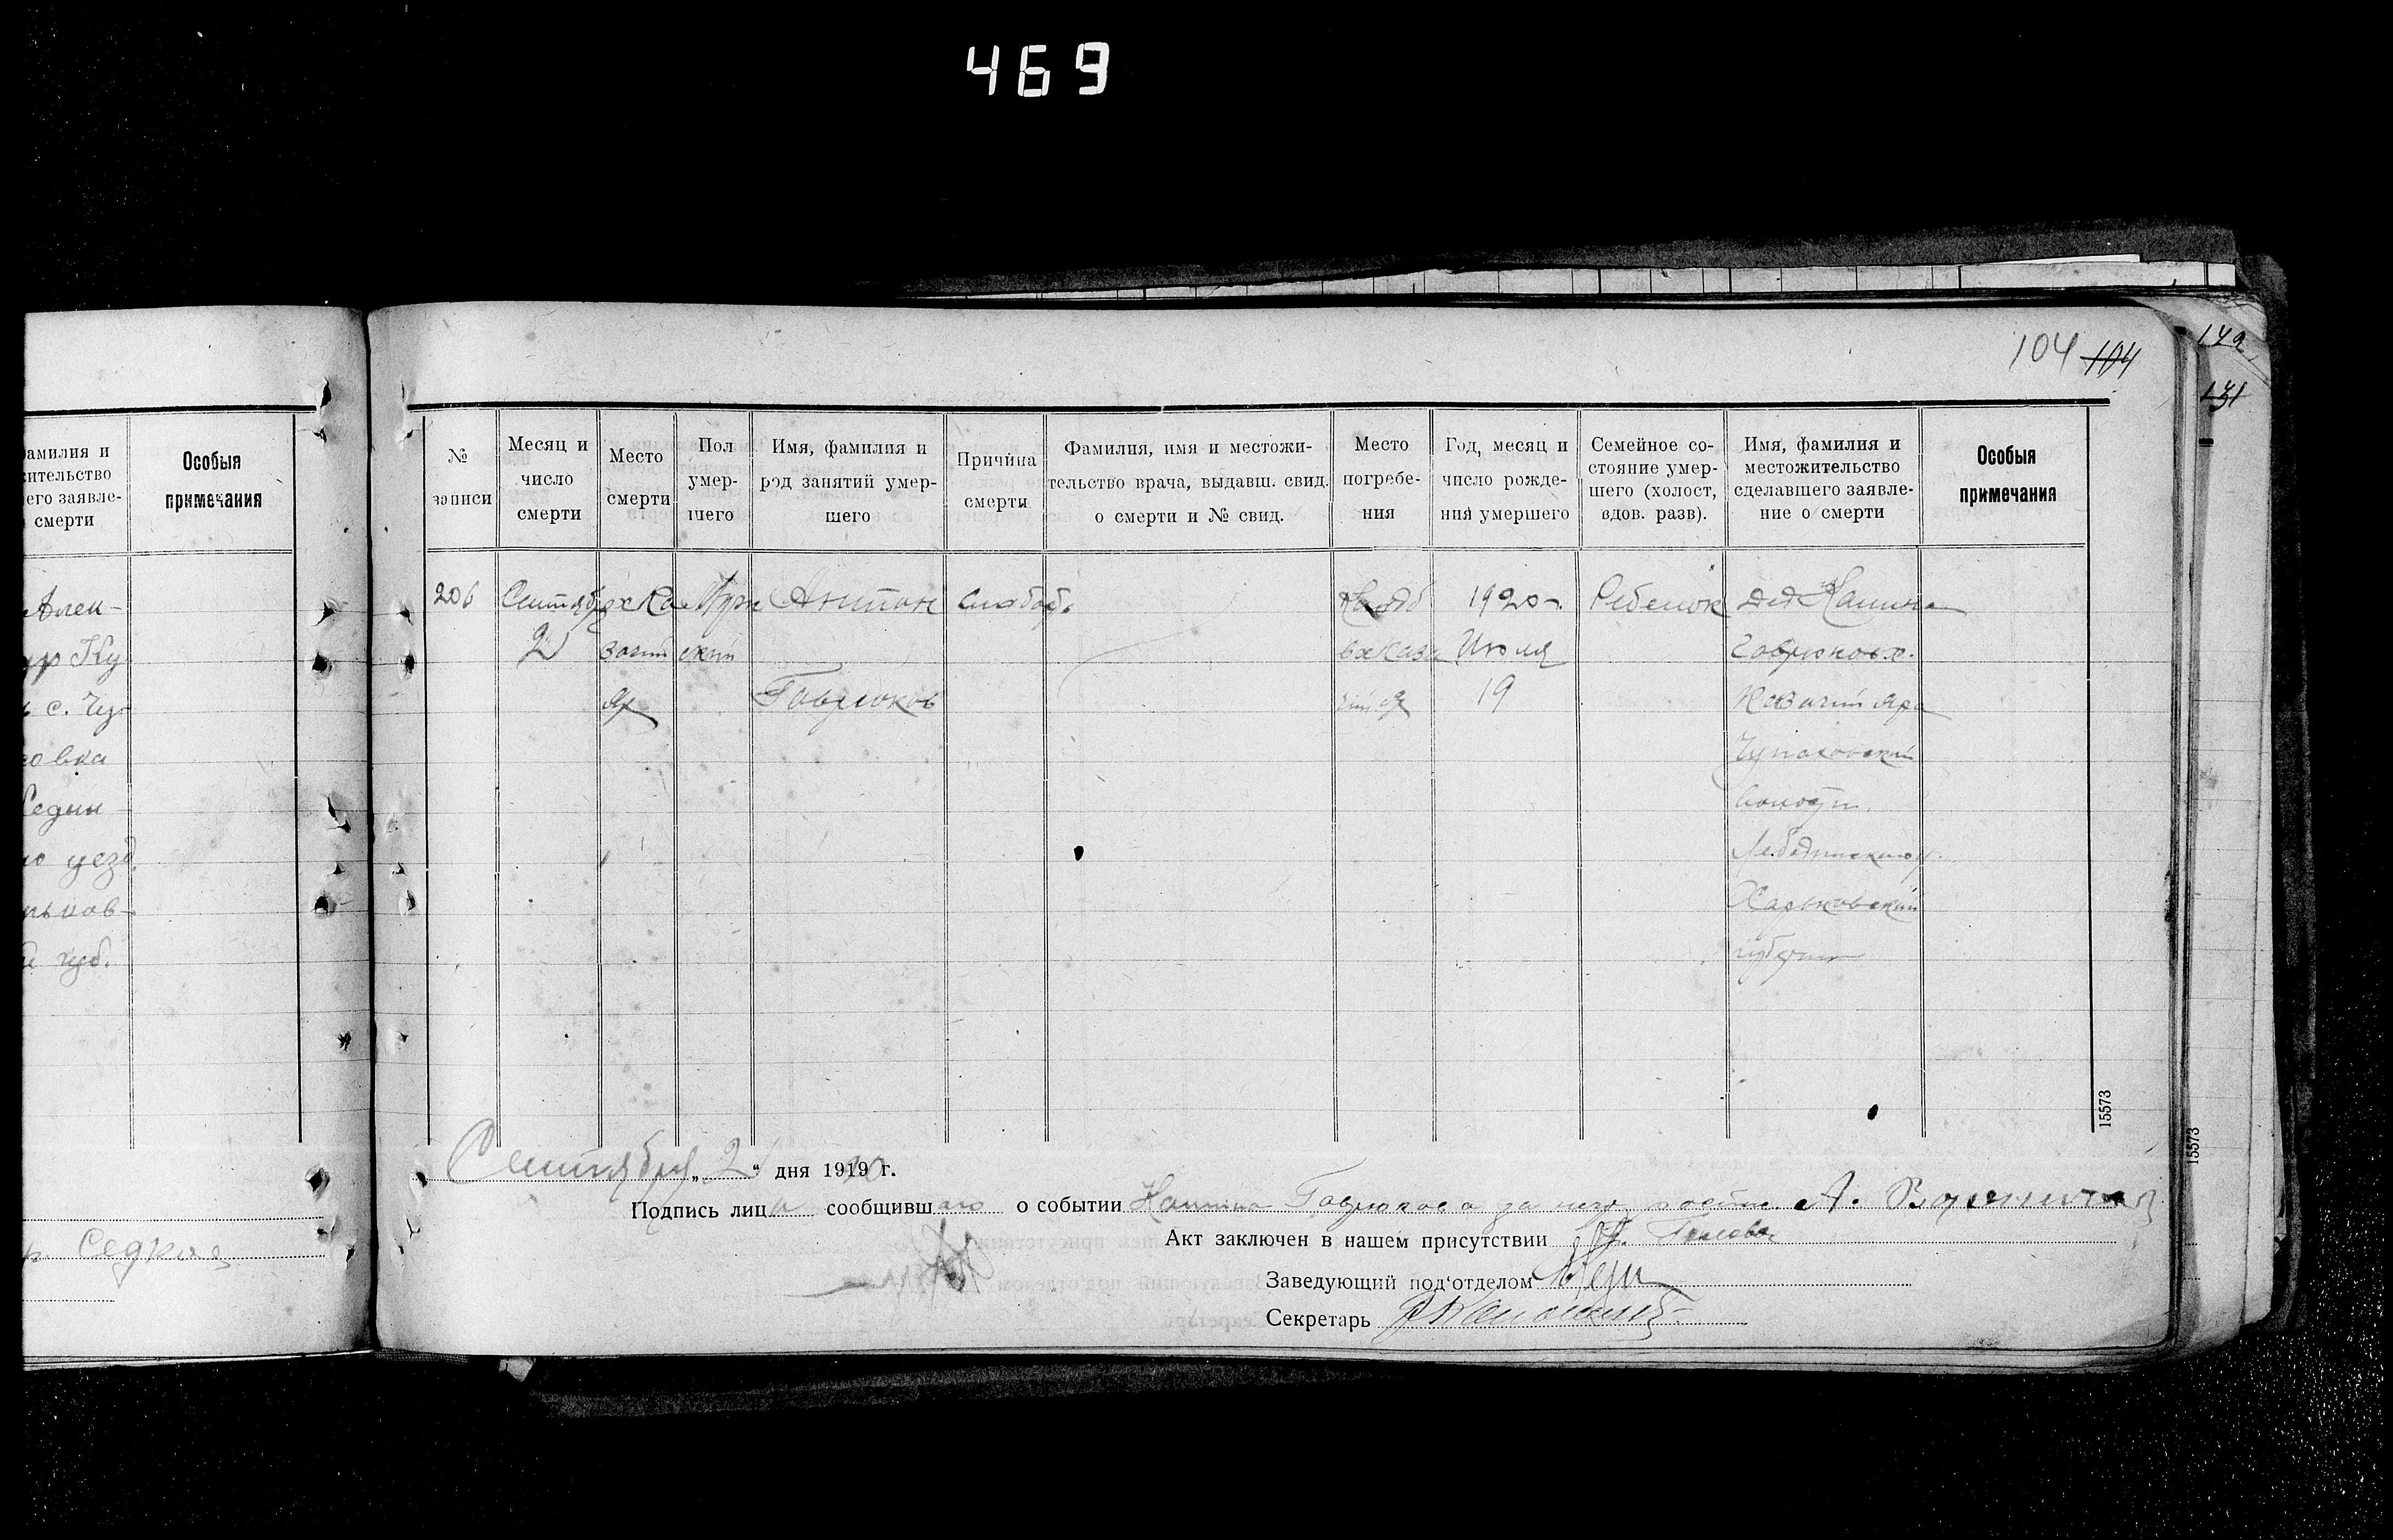 469
104 104
142
131
амилия и
ительство
его заявле-
смерти
Особыя
примечания
Алек-
ур Ку
с. Чу-
овка
уезд.
ьков-
губ.
№
записи
Месяц и
число
смерти
Место
смерти
Пол
умер-
шего
Имя, фамилия и
род занятий умер-
шего
Причина
смерти
Фамилия, имя и местожи-
тельство врача, выдавш. свид.
о смерти и № свид.
Место
погребе-
ния
Год, месяц и
число рожде-
ния умершего
Семейное со-
стояние умер-
шего (холост,
вдов. разв).
Имя, фамилия и
местожительство
сделавшего заявле-
ние о смерти
Особыя
примечания
206
Сентябр
2
х Ка
зачий
яр
Муж
ский
Антон
Гаврюков
слабость
кладб
в х Каза
чий яр
1920 г.
Июля
19
Ребенок
дед
Гаврюков х.
Казачий Яра
Чупаховский
волости
Лебединского у.
Харьковский
губернии
15573
15573
Сентября „ 2 “ дня 1919 20 г.
Подпись лица сообщившаго о событии Гаврюкова за него А.
Акт заключен в нашем присутствии
Заведующий под‘отделом
Секретарь